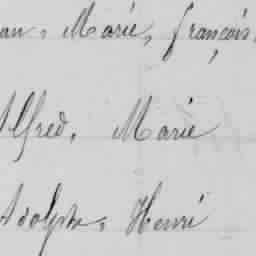 an, Marie, françois
Alfred, Marie
Adolphe, Henri